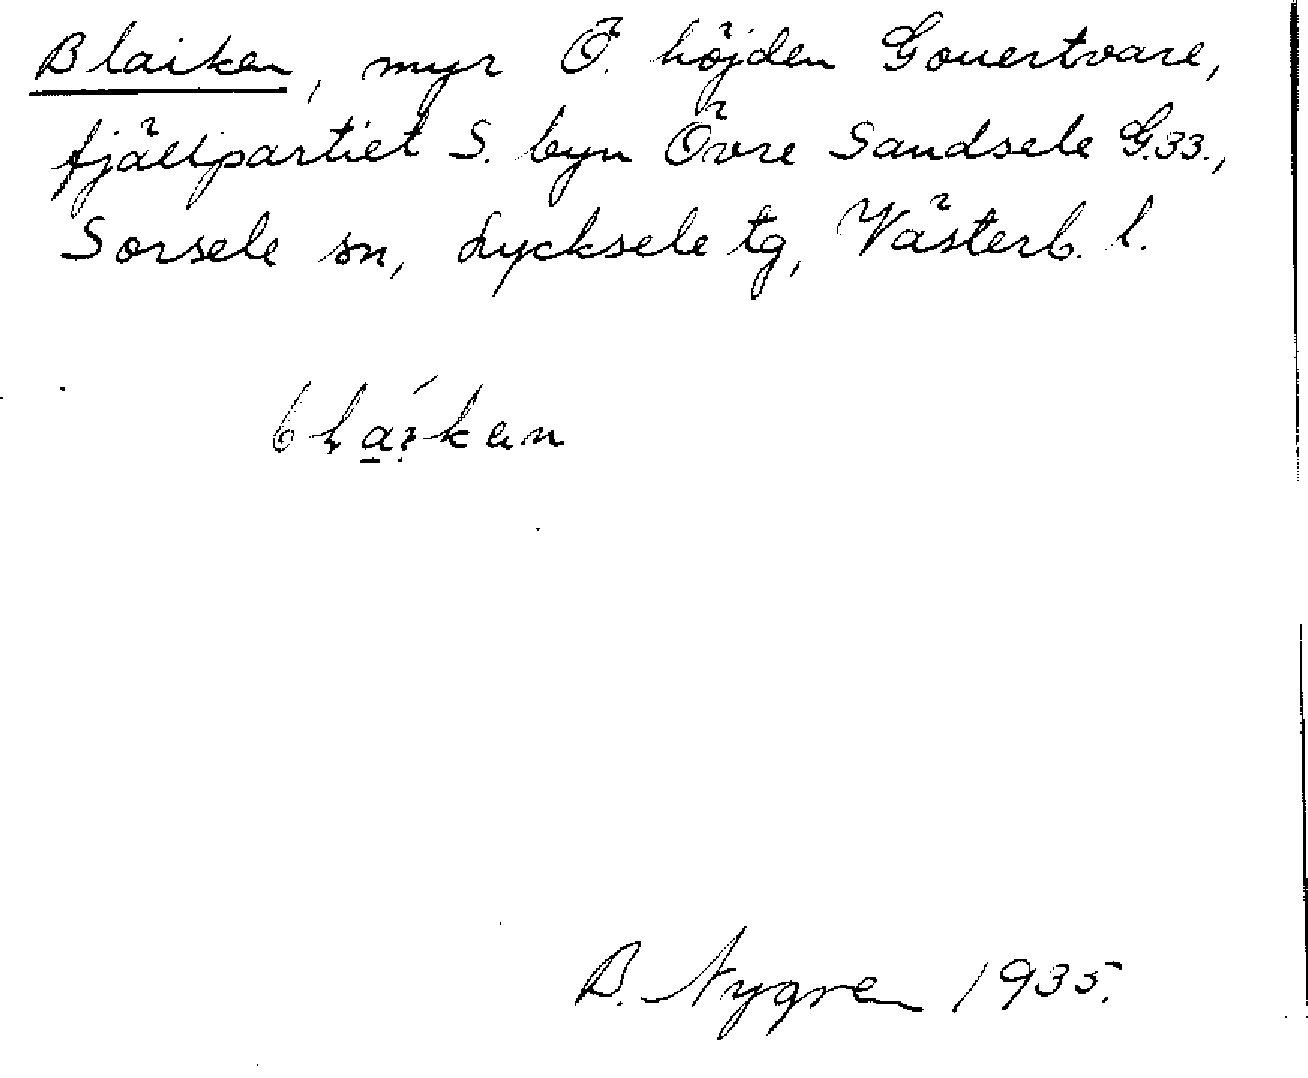 Blaiken, myr Ö. höjden Gouertvare,
fjällpartiet S. byn Övre Sandsele G.33.,
Sorsele sn, Lycksele tg, Västerb. l.
B. Nygren 1935.